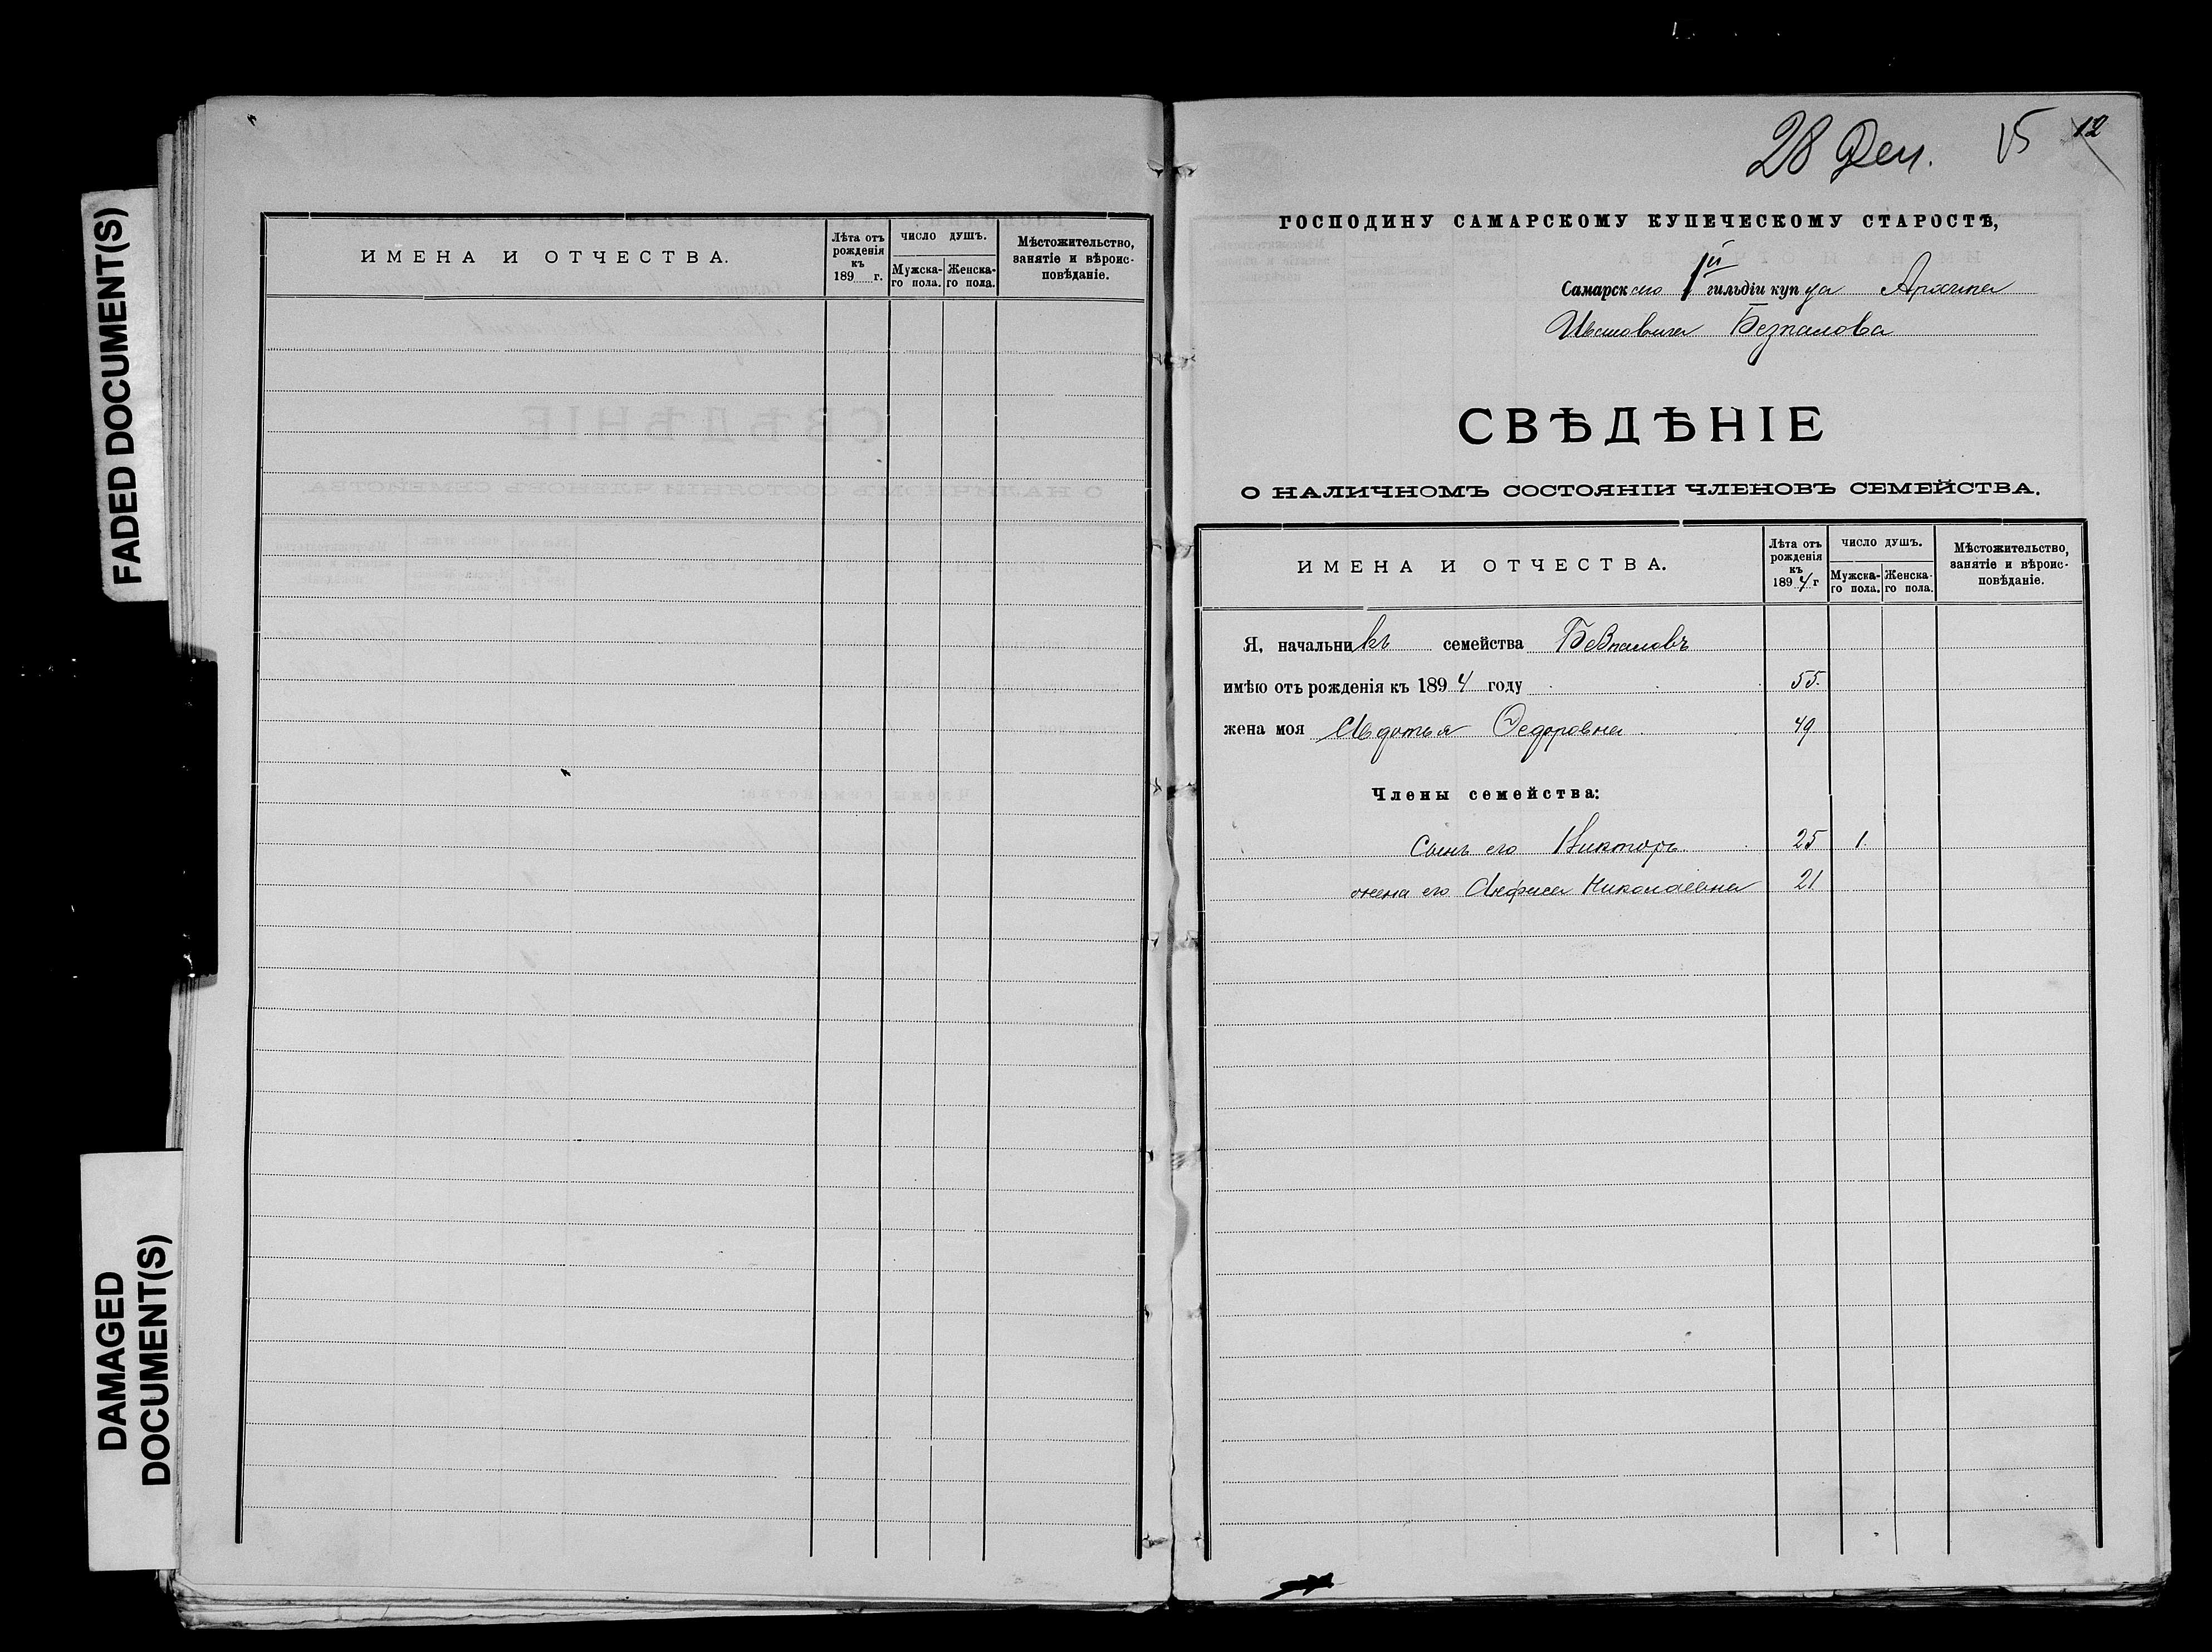 FADED DOCUMENT(S)
DAMAGED
DOCUMENT(S)
ИМЕНА И ОТЧЕСТВА.
Лѣта отъ
рожденія
къ
189 г.
ЧИСЛО ДУШЪ.
Мужска-
го пола.
Женска-
го пола.
Мѣстожительство,
занятіе и вѣроис-
повѣданіе.
28 Дек. 15 12
ГОСПОДИНУ САМАРСКОМУ КУПЕЧЕСКОМУ СТАРОСТѢ,
Самарскаго 1й гильдіи купца Архипа
Безпалова
СВѢДѢНІЕ
О НАЛИЧНОМЪ СОСТОЯНІИ ЧЛЕНОВЪ СЕМЕЙСТВА.
ИМЕНА И ОТЧЕСТВА.
Лѣта отъ
рожденія
къ
1894 г
ЧИСЛО ДУШЪ.
Мужска-
го пола.
Женска-
го пола.
Мѣстожительство,
занятіе и вѣроис-
повѣданіе.
Я, начальникъ семейства Безпаловъ
имѣю отъ рожденія къ 1894 году 55.
жена моя Авдотья Федоровна 49
Члены семейства:
Сынъ его Викторъ 25 1.
жена его Анфиса Николаевна 21